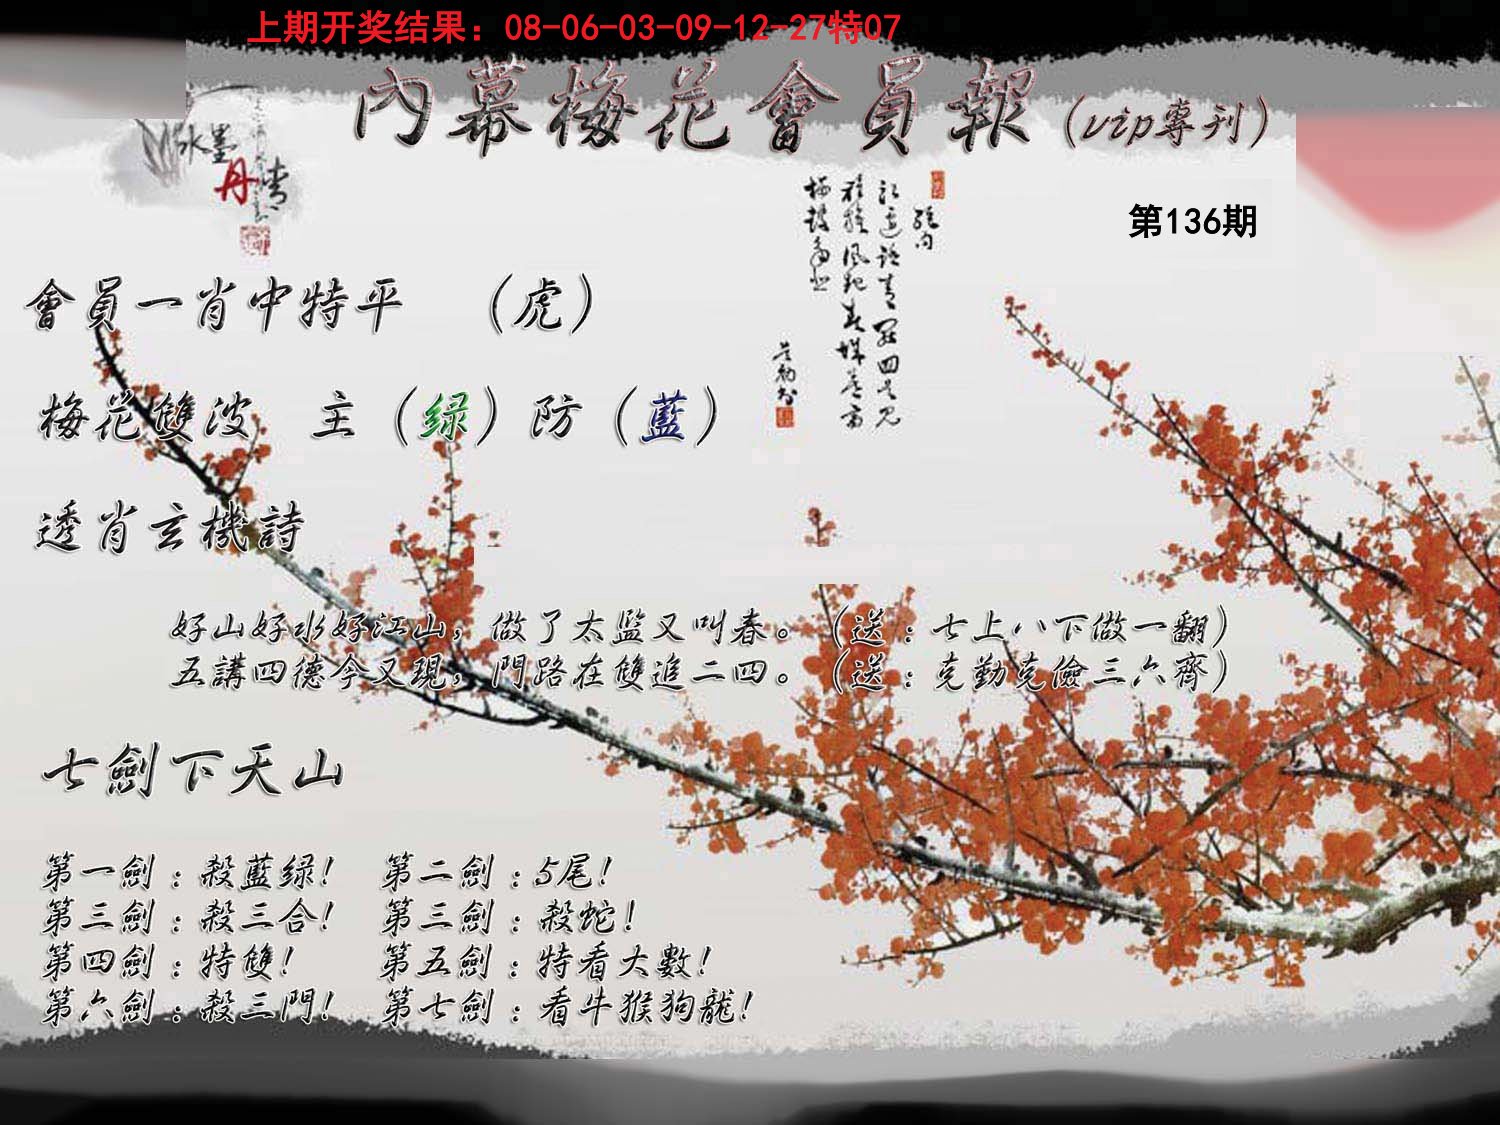 上期开奖结果：08-06-03-09-12-27特07
內幕梅花會員報（vip專刊）
水墨
丹青
第136期
會員一肖中特平　（虎）
梅花雙波　主（绿）防（藍）
透肖玄機詩
好山好水好江山，做了太監又叫春。（送：七上八下做一翻）
五講四德今又現，門路在雙追二四。（送：克勤克儉三六齊）
七劍下天山
第一劍：殺藍绿!　第二劍：5尾!
第三劍：殺三合!　第三劍：殺蛇!
第四劍：特雙!　第五劍：特看大數!
第六劍：殺三門!　第七劍：看牛猴狗龍!